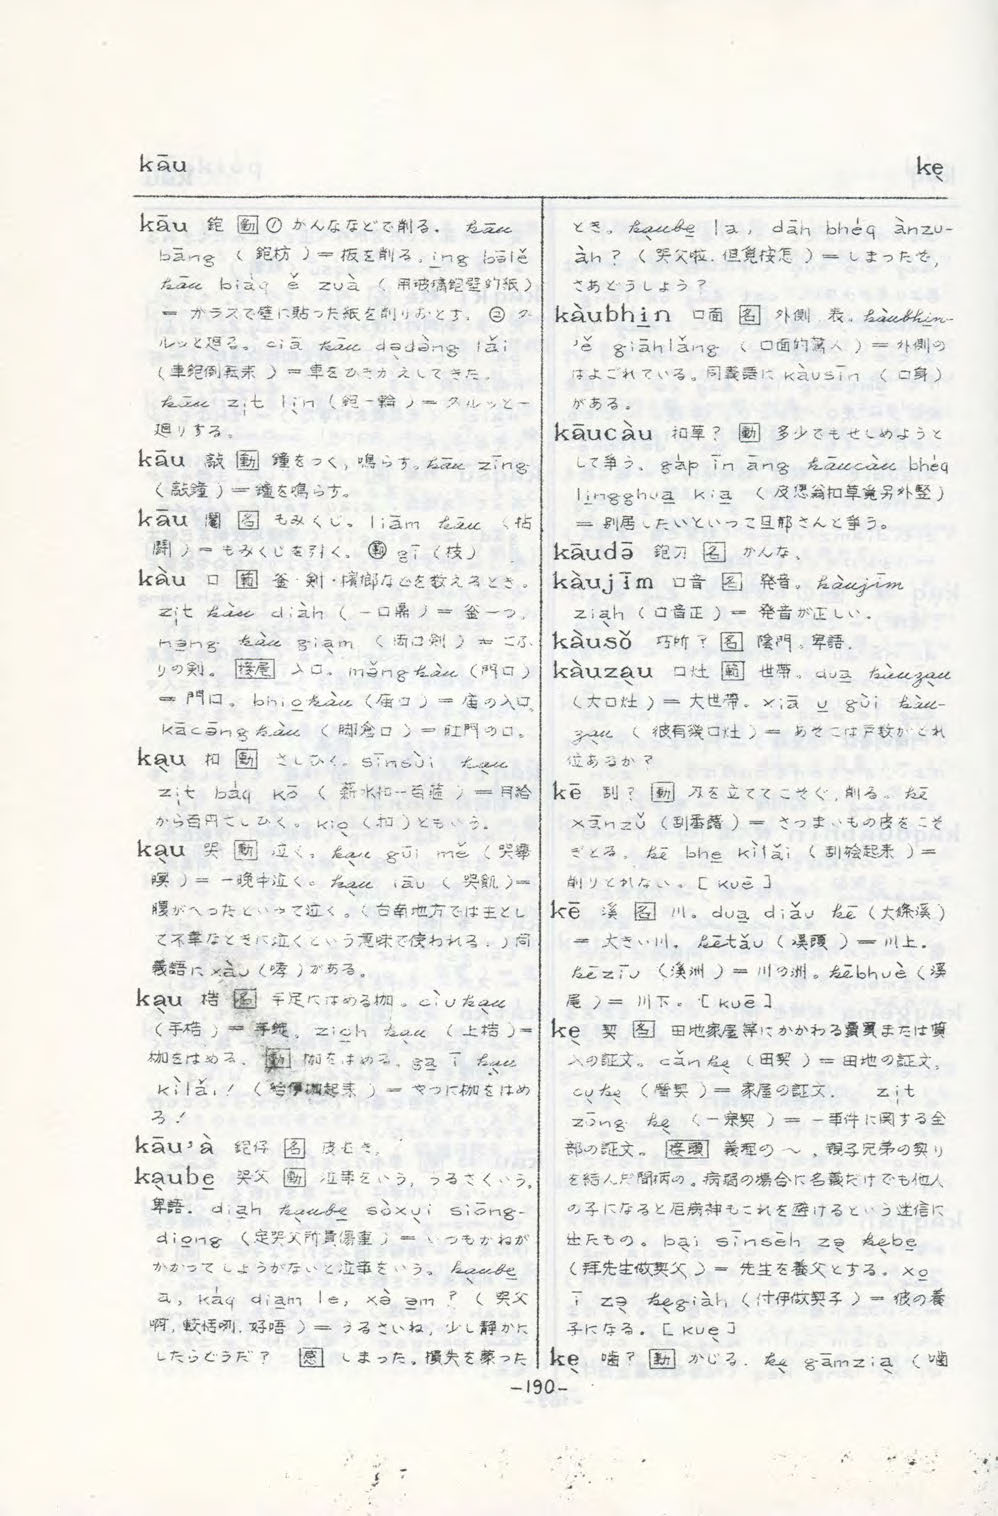 kāu
kę
kāu 鉋 動 ① かんななどで削る。 kāu
bāng ( 鉋枋 ) = 板を削る。 ing bōlě
kāu biáq ě zuà ( 用玻璃鉋壁的紙 )
= ガラスで壁に貼った紙を削りおとす。 ② ク
ルッと廻る。 ciā kāu dədòng lǎi
( 車鉋倒転来 ) = 車をひきかえしてきた。
kāu zịt lịn ( 鉋一輪 ) = クルッと一
廻りする。
kāu 敲 動 鐘をつく, 鳴らす。 kāu zīng
( 敲鐘 ) = 鐘を鳴らす。
kāu 鬮 名 もみくじ。 liām kāu ( 拈
鬮 ) = もみくじを引く。 動 gī ( 枝 )
kàu 口 範 釜・剣・檳榔などを数えるとき。
zịt kàu diàh ( 一口鼎 ) = 釜一つ。
nəng kàu giam ( 両口剣 ) = 二ふ
りの剣。 接尾 入口。 mǒng kàu ( 門口 )
= 門口。 bhiọ kàu ( 庙口 ) = 庙の入口。
kācāng kàu ( 脚倉口 ) = 肛門の口。
kạu 扣 動 さしひく。 sīnsùi kạu
zịt báq kō ( 薪水扣一百箍 ) = 月給
から百円さしひく。 kiọ ( 扣 ) ともいう。
kạu 哭 動 泣く。 kạu gūi mě ( 哭攑
暝 ) = 一晩中泣く。 kạu iāu ( 哭飢 ) =
腹がへったといって泣く。 ( 台南地方では主とし
て不幸なときに泣くという意味で使われる。 ) 同
義語に xàu ( 哮 ) がある。
kạu 梏 名 手足にはめる枷。 ciukạu
( 手梏 ) = 手錠。 zioh kạu ( 上梏 ) =
枷をはめる。 動 枷をはめる。 gạ ī kạu
kìlǎi! ( 起来 ) = やつに枷をはめ
ろ!
kāu'à 鉋仔 名 皮むき。
kạubẹ 哭父 動 泣事をいう, うるさくいう。
卑語。 diạh kạubẹ sòxụi siōng-
diọng ( 定哭父所費傷重 ) = いつもかねが
かかってしようがないと泣事をいう。 kạubẹ
a, káq diạm le, xò əm ? ( 哭父
啊, 較恬咧, 好唔 ) = うるさいね, 少し静かに
したらどうだ? 感 しまった。損失を蒙った
とき。 kạubẹ la, dāh bhéq ànzu-
àh ? ( 哭父啦, 但覓按怎 ) = しまったぞ,
さあどうしよう?
kàubhịn 口面 名 外側, 表。 kàubhịn-
'ě giāhlǎng ( 口面的驚人 ) = 外側の
はよごれている。同義語に kàusīn ( 口身 )
がある。
kāucàu 扣草? 動 多少でもせしめようと
して争う。 gáp īn āng kāucàu bhéq
lịngghụa kịa ( 及怹翁扣草覓另外竪 )
= 別居したいといって旦那さんと争う。
kāudō 鉋刀 名 かんな。
kàujīm 口音 名 発音。 kàujīm
ziạh ( 口音正 ) = 発音が正しい。
kàusǒ 巧所? 名 陰門。卑語。
kàuzạu 口灶 範 世帯。 dụa kàuzạu
( 大口灶 ) = 大世帯。 xiā ụ gùi kàu-
zạu ( 彼有幾口灶 ) = あそこは戸数がどれ
位あるか?
kē 刮? 動 刃を立ててこそぐ, 削る。 kē
xānzǔ ( 刮番薯 ) = さつまいもの皮をこそ
ぎとる。 kē bhẹ kìlǎi ( 刮起来 ) =
削りとれない。 [ kuē ]
kē 溪 名 川。 dụa diǎu kē ( 大條溪 )
= 大きい川。 kētǎu ( 溪頭 ) = 川上。
kēzīu ( 溪洲 ) = 川の洲。 kēbhuè ( 溪
尾 ) = 川下。 [ kuē ]
kẹ 契 名 田地家屋等にかかわる賣買または質
入の証文。 cǎnkẹ ( 田契 ) = 田地の証文。
cụkẹ ( 厝契 ) = 家屋の証文。 zịt
zōng kẹ ( 一宗契 ) = 一事件に関する全
部の証文。 接頭 義理の 〜 , 親子兄弟の契り
を結んだ間柄の。病弱の場合に名義だけでも他人
の子になると厄病神もこれを避けるという迷信に
出たもの。 bại sīnsēh zə kẹbẹ
( 拜先生做契父 ) = 先生を養父とする。 xọ
ī zə kẹgiàh ( 付伊做契子 ) = 彼の養
子になる。 [ kuẹ ]
kẹ 嚙? 動 かじる。 kẹ gāmzịa ( 嚙
-190-